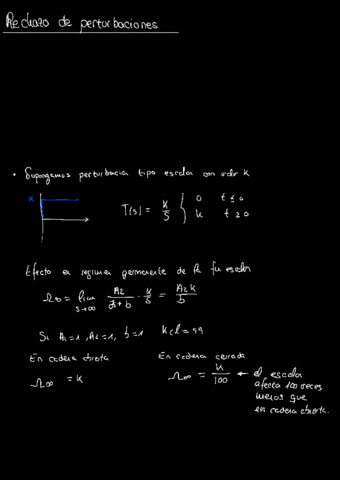 Rechazo de perturbaciones
• Supongamos perturbación tipo escalón con valor K
K
T(s) = K/S { 0 t ≤ 0
K t ≥ 0
Efecto en régimen permanente de la fu escalón
Ω∞ = lim s→∞ A2/(s+b) · K/S = A2K/b
Si A1=1, A2=1, b=1 Kcl=99
En cadena abierta
Ω∞ = K
En cadena cerrada
Ω∞ = K/100 ← el escalón
afecta 100 veces
menos que
en cadena abierta.